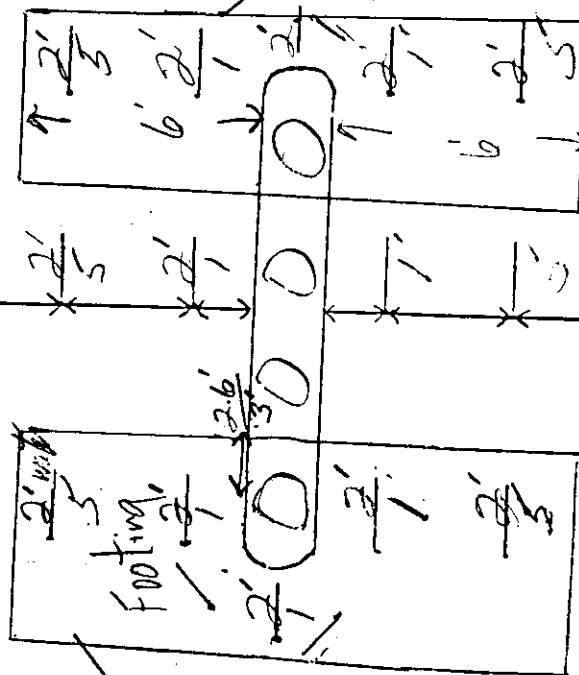 2'/5 2'/1 2'/1 2'/5
6' 6'
2'/5 2'/1 1' 5'
2.6'/3'
2' wide/5 2'/1 2'/1 2'/5
Footing
2'/1